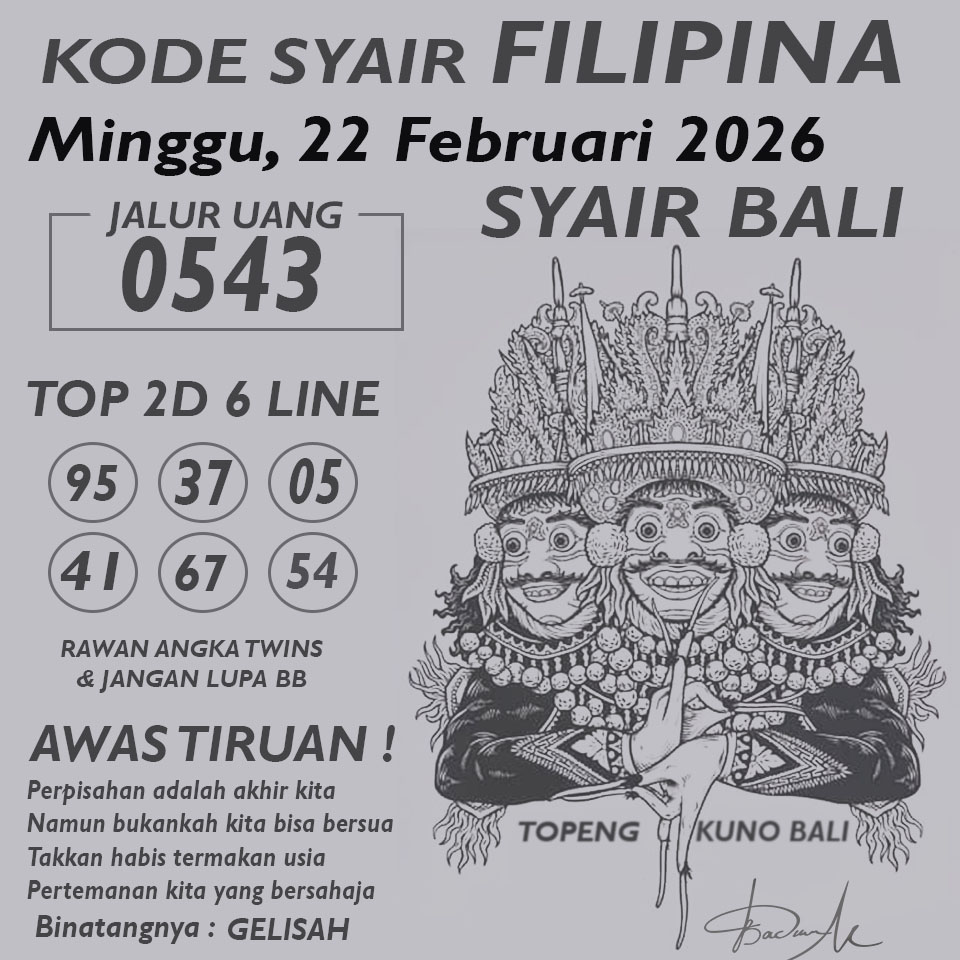 KODE SYAIR FILIPINA
Minggu, 22 Februari 2026
SYAIR BALI
JALUR UANG
0543
TOP 2D 6 LINE
95 37 05
41 67 54
RAWAN ANGKA TWINS
& JANGAN LUPA BB
AWAS TIRUAN !
Perpisahan adalah akhir kita
Namun bukankah kita bisa bersua
Takkan habis termakan usia
Pertemanan kita yang bersahaja
Binatangnya : GELISAH
TOPENG KUNO BALI